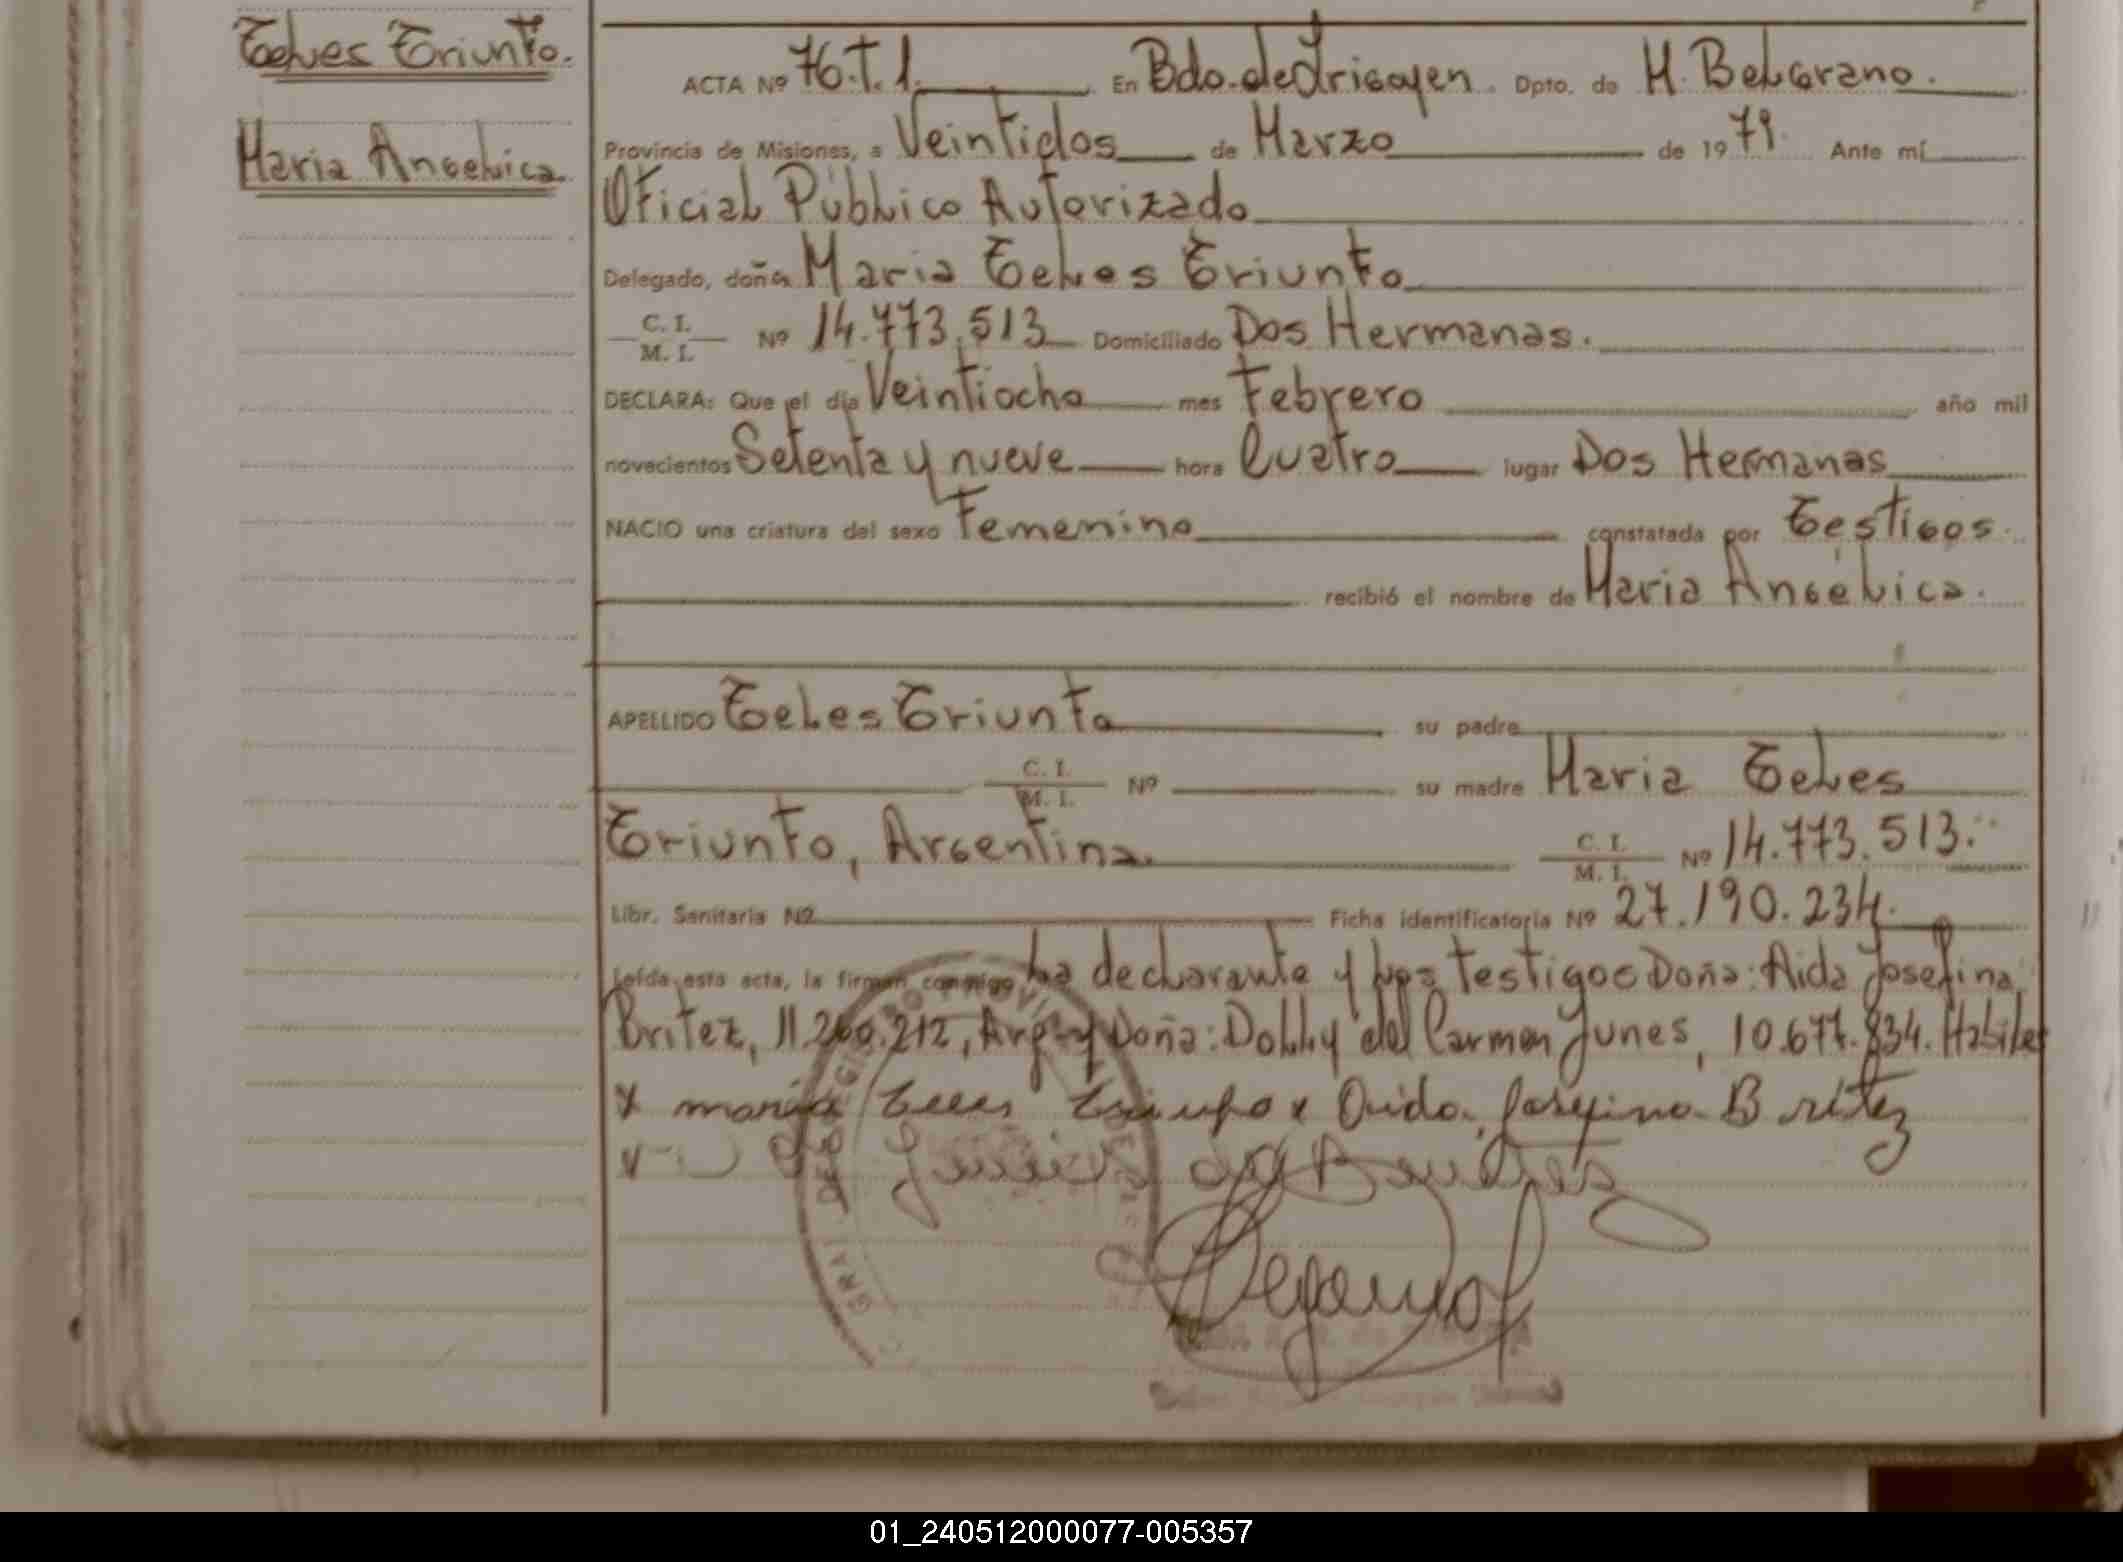 Teles Triunfo.
Maria Angelica
ACTA Nº 76.T.1. En Bdo. de Irigoyen. Dpto. de M. Belgrano.
Provincia de Misiones, a Veintidos de Marzo de 1979. Ante mí
Oficial Público Autorizado
Delegado, doña Maria Teles Triunfo
C. I.
M. I. Nº 14.773.513 Domiciliado Dos Hermanas.
DECLARA: Que el día Veintiocho mes Febrero año mil
novecientos Setenta y nueve hora Cuatro lugar Dos Hermanas
NACIO una criatura del sexo Femenino constatada por Testigos.
recibió el nombre de Maria Angélica.
APELLIDO Teles Triunfo su padre
C. I.
M. I. Nº su madre Maria Teles
Triunfo, Argentina. C. I.
M. I. Nº 14.773.513.
Libr. Sanitaria Nº Ficha identificatoria Nº 27.190.234.
Leída esta acta, la firman conmigo La declarante y los Testigos Doña: Aida Josefina
Britez, 11.260.212, Arg. y Doña: Dolly del Carmen Junes, 10.677.834. Habiles
x maria Teles Triunfo x Aida Josefina Britez
01_240512000077-005357